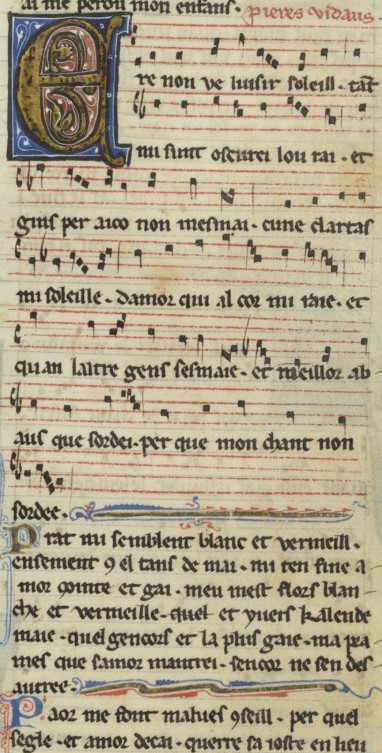 ai me perou mon enfans.
pieres vidaus
Ere non ve luisir soleill. tāt
mi sunt oscurei lou rai. et
gins per aico non mesmai. cune clartas
mi soleille. damor qui al cor mi raie. et
quan lautre gens sesmaie. et meillor ab
aus que sordei. per que mon chant non
sordee.
Prat mi semblent blanc et vermeill.
ensement 9 el tans de mai. mi ten fine a
mor cointe et gai. meu mest flors blan
che et vermeille. quel et yuers kalende
maie. quel gencors et la plus gaie. ma pra
mes que samor mautrei. sencor ne sen des
autree.
Paor me font malues 9seill. per quel
segle. et amor decai. querre sa ioste en lieu